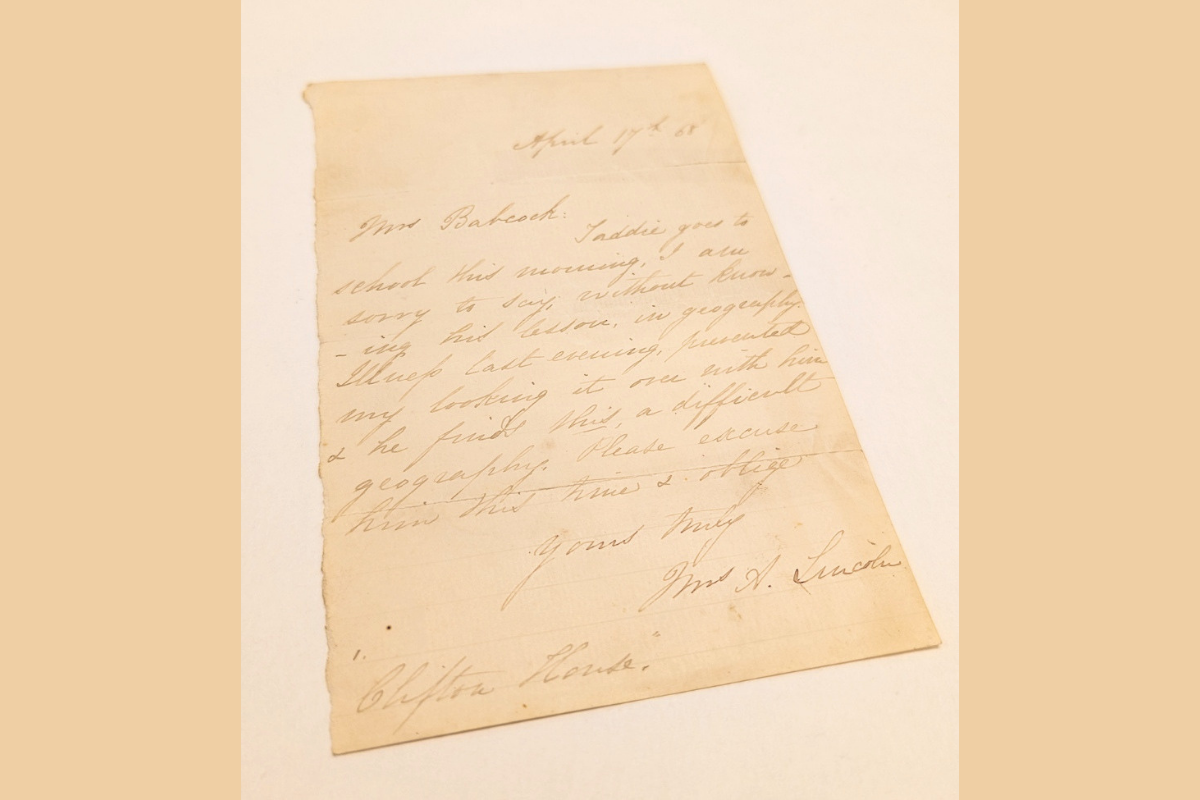 April 17th 68
Mrs Babcock:
Taddie goes to
school this morning, I am
sorry to say, without know-
-ing his lesson, in geography.
Illness last evening, prevented
my looking it over with him
& he finds this, a difficult
geography. Please excuse
him this time & oblige
Yours truly
Mrs A. Lincoln
"Clifton House."